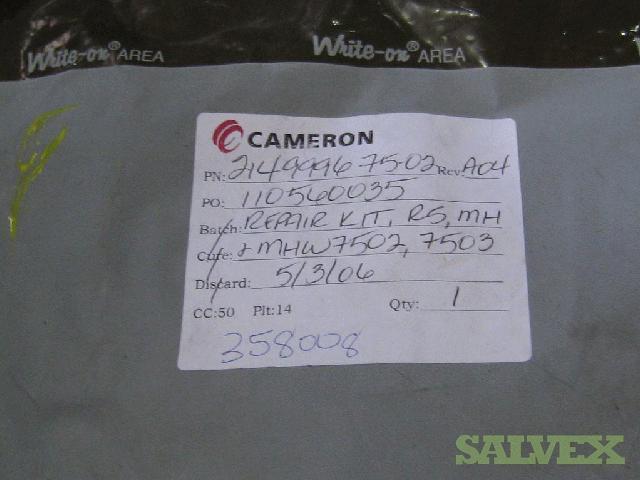 Write-on® AREA Write-on® AREA
CAMERON
PN: 2149996-75-02 Rev: A04
PO: 110560035
Batch: REPAIR KIT, RS, MH
Cure: & MHW7502, 7503
Discard: 5/3/06
CC:50 Plt:14 Qty: 1
358008
SALVEX